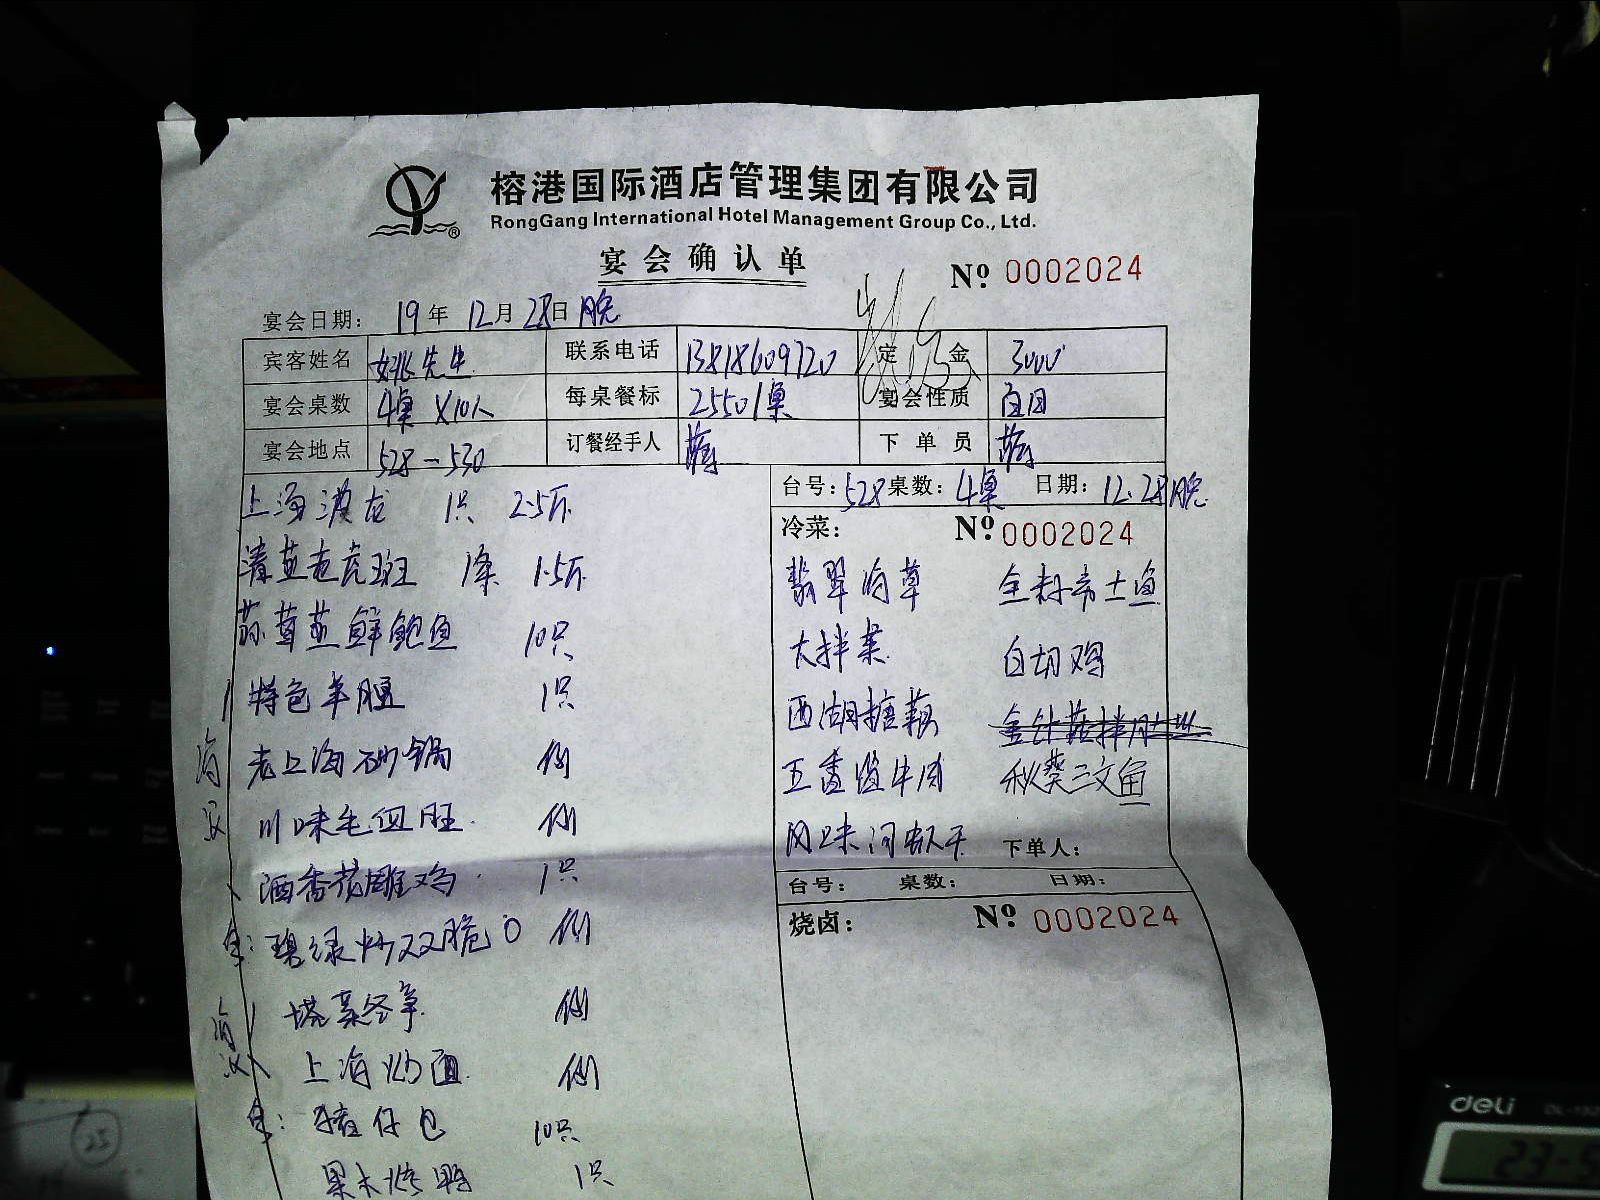 榕港国际酒店管理集团有限公司
RongGang International Hotel Management Group Co., Ltd.
宴会确认单
Nº 0002024
宴会日期: 19年 12月 28日 晚
宾客姓名 姚先生 联系电话 13818609720 定金 3000
宴会桌数 4桌×10人 每桌餐标 2550/桌 宴会性质
宴会地点 528-530 订餐经手人 下单员
台号: 528 桌数: 4桌 日期: 12.28晚
上海 1只 2.5斤
清蒸老虎斑 1条 1.5斤
蒜茸蒸鲜鲍鱼 10只
特色羊腿 1只
老上海砂锅 例
川味毛血旺 例
酒香花雕鸡 1只
碧绿炒双脆 例
塔菜冬笋 例
上海炒面 例
猪仔包 10只
果木烤鸭 1只
冷菜:
Nº 0002024
翡翠海草
大拌菜 白切鸡
西湖糖藕
五香酱牛肉 秋葵三文鱼
风味
下单人:
台号: 桌数: 日期:
烧卤:
Nº 0002024
25
deli